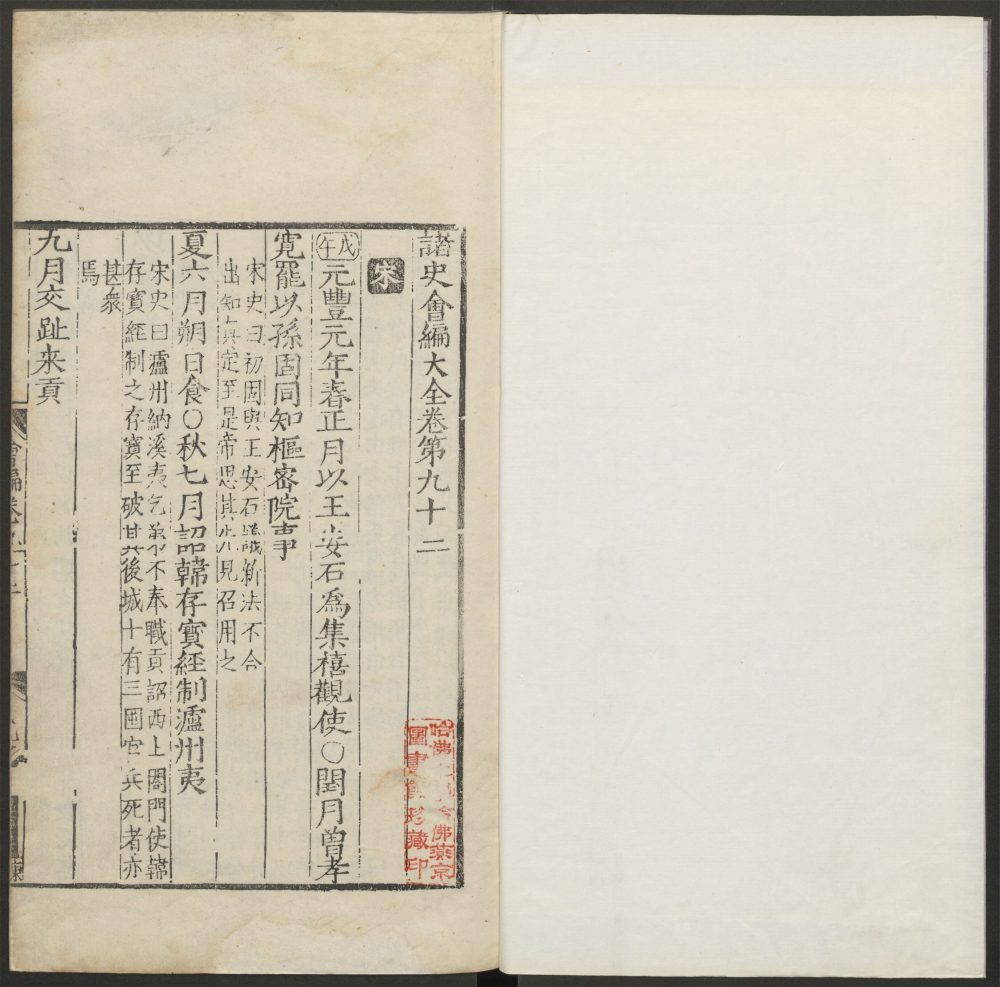 諸史會編大全卷第九十二
宋
戊午元豐元年春正月以王安石爲集禧觀使○閏月曾孝
寛罷以孫固同知樞密院事
宋史曰初固與王安石議新法不合
出知真定至是帝思其先見召用之
夏六月朔日食○秋七月詔韓存寳經制瀘州夷
宋史曰瀘州納溪夷乞弟不奉職貢詔西上閤門使韓
存寳經制之存寳至破其後城十有三囤官兵死者亦
甚衆
焉
九月交趾来貢
會編卷九十二
哈佛大學哈佛燕京
圖書館珍藏印